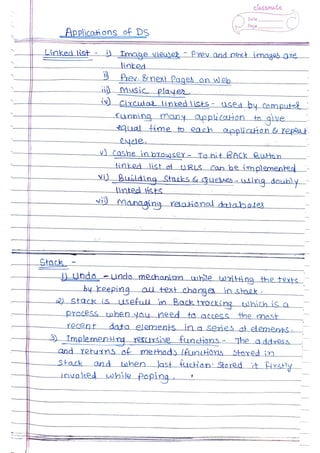 classmate
Date
Page
Applications of DS
Linked list - i) Image viewer - Prev and next images are
linked
ii) Prev & next Pages on Web
iii) Music player
iv) Circular linked lists - used by computer
running many application to give
equal time to each application & repeat
cycle.
v) Cashe in browser - To hit BACK Button
linked list of URLs can be implemented
vi) Building Stacks & Queues - using doubly
linked lists
vii) Managing relational databases
Stack -
1) Undo - Undo mechanism while writting the texts
by keeping all text changes in stack.
2) Stack is usefull in Back tracking which is a
process when you need to access the most
recent data elements in a series of elements.
3) Implementing recursive functions - The address
and returns of methods / functions stored in
stack and when last fuction stored it firstly
invoked while poping.